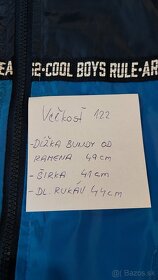 EA
S2-COOL BOYS RULE-AR
VEĽKOSŤ 122
- DĹŽKA BUNDY OD
RAMENA 49cm
- ŠÍRKA 41cm
- DL. RUKÁV 44cm
bazos.sk